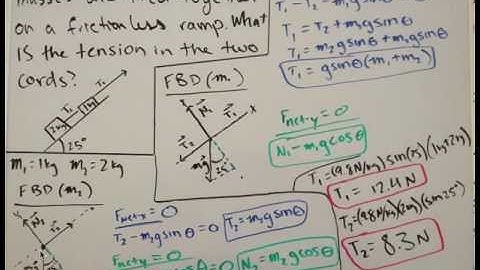 on a frictionless ramp. What
is the tension in the two
cords?
T₁
T₂
2kg
1kg
25°
m₁ = 1kg m₂ = 2kg
FBD (m₂)
FBD (m₁)
N₁
T₁
x
T₂
m₁g
25
T₁ = T₂ + m₁gsinθ
T₁ = m₂gsinθ + m₁gsinθ
T₁ = gsinθ(m₁+m₂)
Fnet-y = 0
N₁ - m₁gcosθ
T₁ = (9.8N/kg)sin(25)(1kg+2kg)
T₁ = 12.4N
T₂ = (9.8N/kg)(2kg)(sin25°)
T₂ = 8.3N
Fnet-x = 0
T₂ - m₂gsinθ = 0
T₂ = m₂gsinθ
Fnet-y = 0
N₂ = m₂gcosθ
N₂
T₂
x